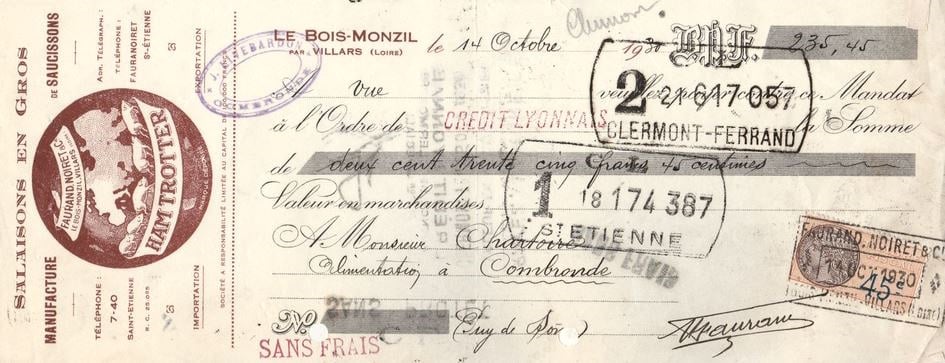 SALAISONS EN GROS
MANUFACTURE DE SAUCISSONS
TÉLÉPHONE : 7-40 SAINT-ETIENNE R. C. 25 085
ADR. TÉLÉGRAPH. : TÉLÉPHONE : FAURANOIRET ST-ÉTIENNE
FAURAND, NOIRET & Cie
LE BOIS-MONZIL, VILLARS
HAM TROTTER
MARQUE DÉPOSÉE
IMPORTATION
EXPORTATION
SOCIÉTÉ A RESPONSABILITÉ LIMITÉE AU CAPITAL DE
LE BOIS-MONZIL
PAR VILLARS (LOIRE)
le 14 Octobre 1930 B.P.F. 235,45
Clermont
vue veuillez payer contre ce Mandat
2
21 617 057
CLERMONT-FERRAND
à l'Ordre de CREDIT LYONNAIS la Somme
de deux cent trente cinq francs 45 centimes
1
18 174 387
ST ETIENNE
Valeur en marchandises
A Monsieur Chartoire
Alimentation à Combronde
No (Puy de Dôme)
SANS FRAIS
FAURAND, NOIRET & Cie
14 OCT. 1930
VILLARS (LOIRE)